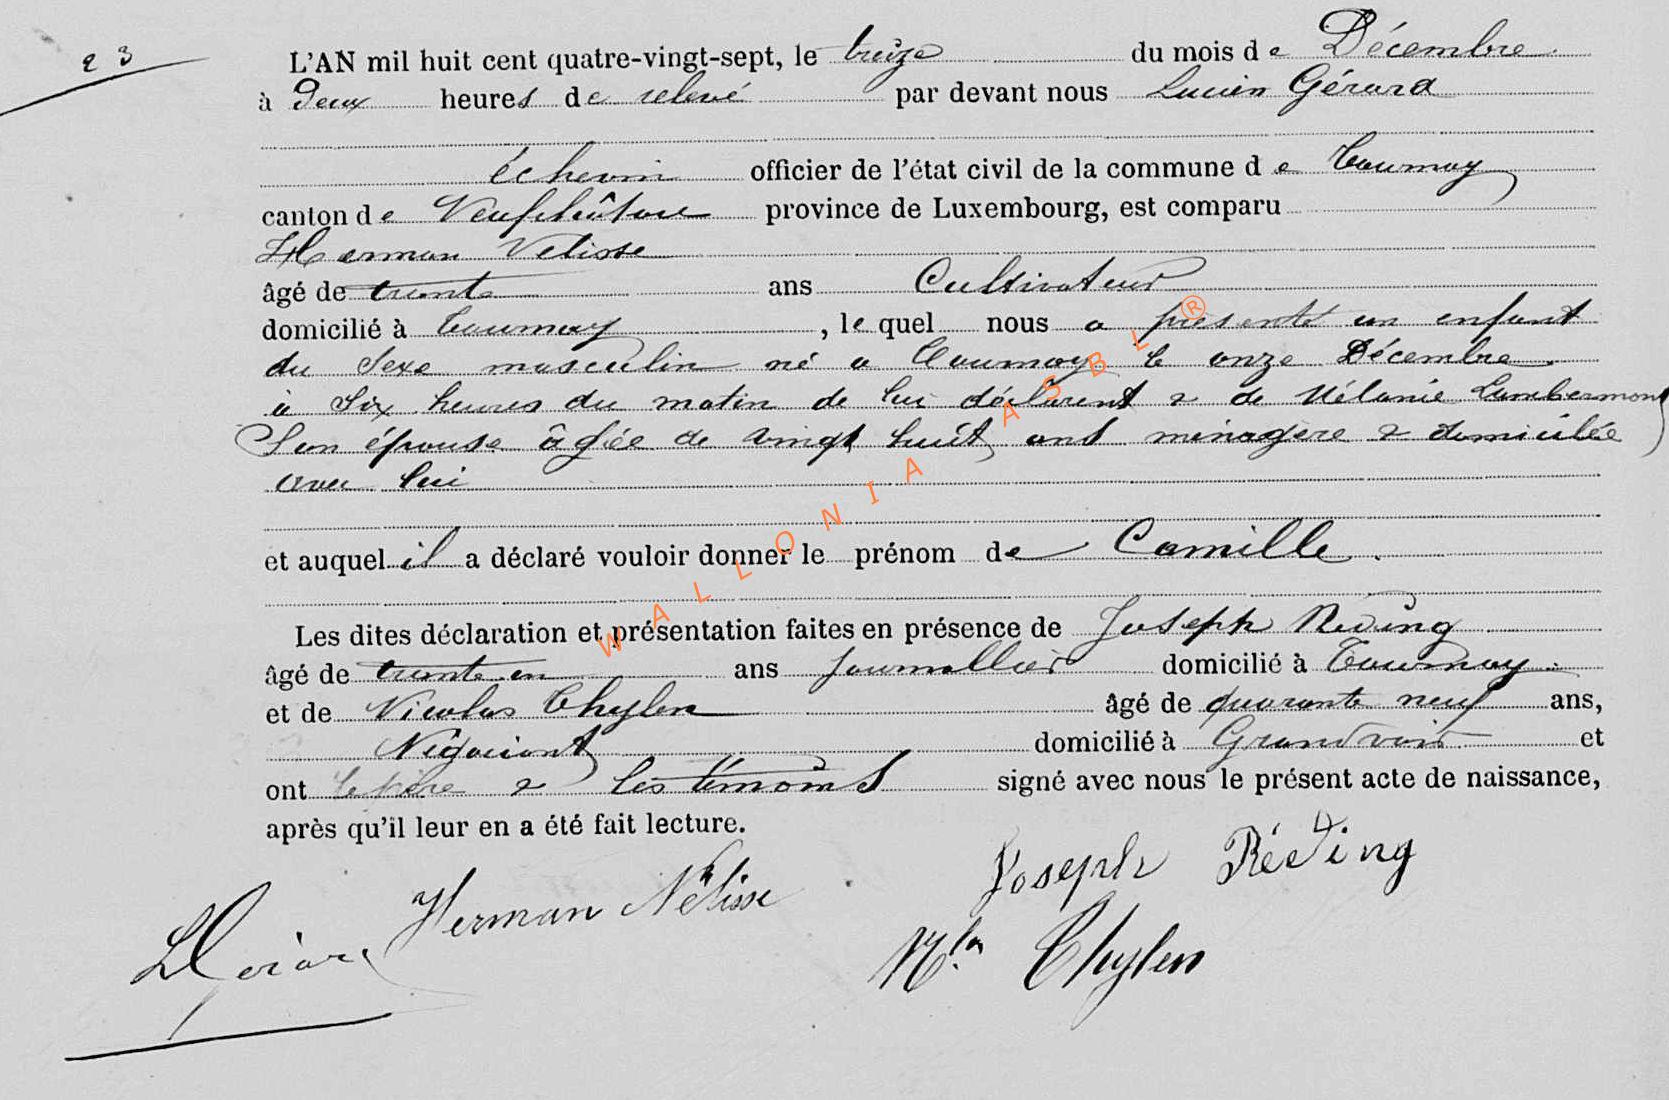 23
L'AN mil huit cent quatre-vingt-sept, le treize du mois de Décembre
à Deux heures de relevé par devant nous Lucien Gérard
échevin officier de l'état civil de la commune de Tournay
canton de Neufchâteau province de Luxembourg, est comparu
Herman Nelisse
âgé de trente ans Cultivateur
domicilié à Tournay, lequel nous a présenté un enfant
du Sexe masculin né a Tournay le onze Décembre
à Six heures du matin de lui déclarent & de Mélanie Lambermont
Son épouse âgée de vingt huit ans ménagère & domiciliée
avec lui
et auquel il a déclaré vouloir donner le prénom de Camille.
Les dites déclaration et présentation faites en présence de Joseph Reding
âgé de trente un ans journallier domicilié à Tournay
et de Nicolas Thylen âgé de quarante neuf ans,
Négociant domicilié à Grandvoir et
ont le père & les témoins signé avec nous le présent acte de naissance,
après qu'il leur en a été fait lecture.
Joseph Réding
Herman Nélisse
LGérard
Nlas Thylen
WALLONIA ASBL ®